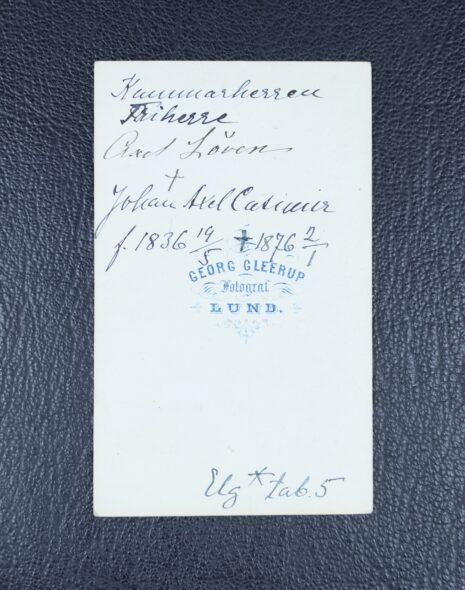 Kammarherren
Friherre
Axel Löven
+
Johan Axel Casimir
f. 1836 19/5 + 1876 2/1
GEORG GLEERUP
Fotograf
LUND.
Elg * tab. 5